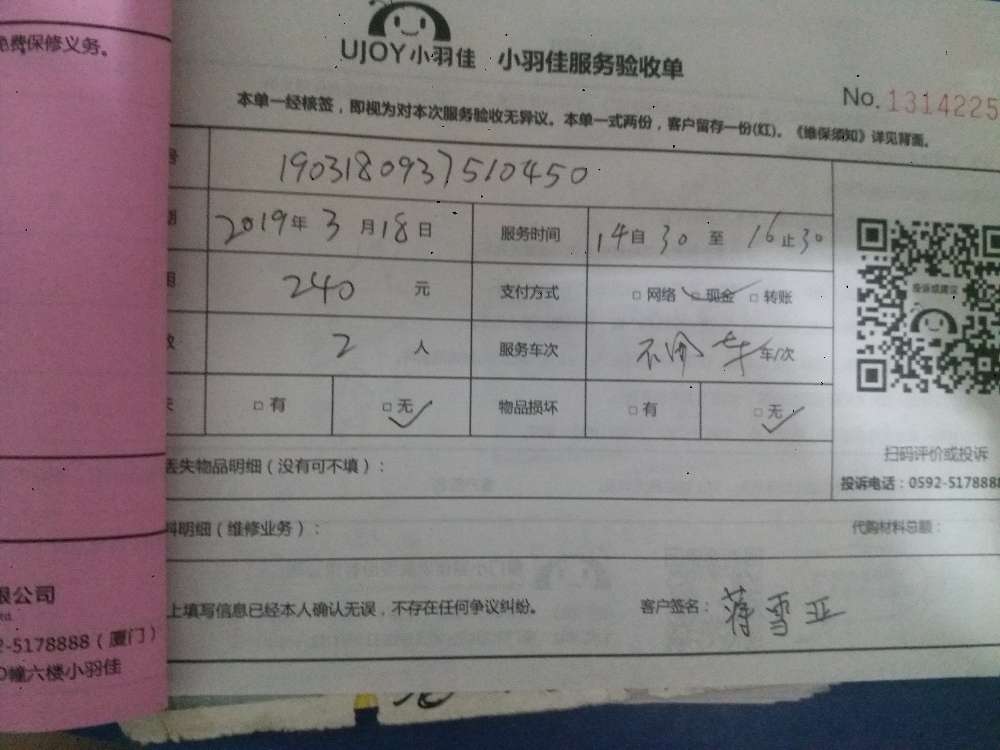 免费保修义务。
UJOY小羽佳 小羽佳服务验收单
No.1314225
本单一经核签，即视为对本次服务验收无异议。本单一式两份，客户留存一份(红)。《维保须知》详见背面。
号 190318093751045O
期 2019年3月18日 服务时间 14自30至16止30
用 240元 支付方式 □网络 □现金 □转账
投诉或建议
数 2人 服务车次 车/次
失 □有 □无 物品损坏 □有 □无
扫码评价或投诉
丢失物品明细（没有可不填）：
投诉电话：0592-5178888
料明细（维修业务）： 代购材料总额：
限公司
上填写信息已经本人确认无误，不存在任何争议纠纷。 客户签名：蒋雪亚
2-5178888（厦门）
D幢六楼小羽佳